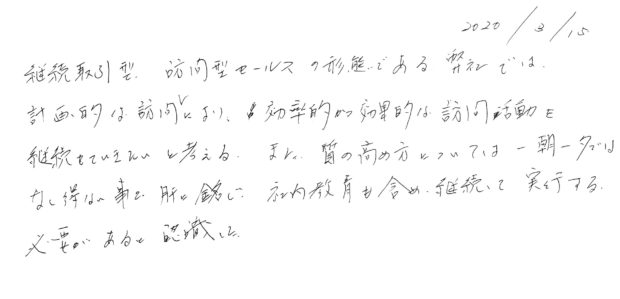 2020/3/15
継続取引型、訪問型セールスの形態である弊社では、
計画的な訪問により、効率的かつ効果的な訪問活動を
継続していきたいと考える。また、質の高め方については一朝一夕では
なし得ない事と肝に銘じ、社内教育も含め、継続して実行する
必要があると認識した。